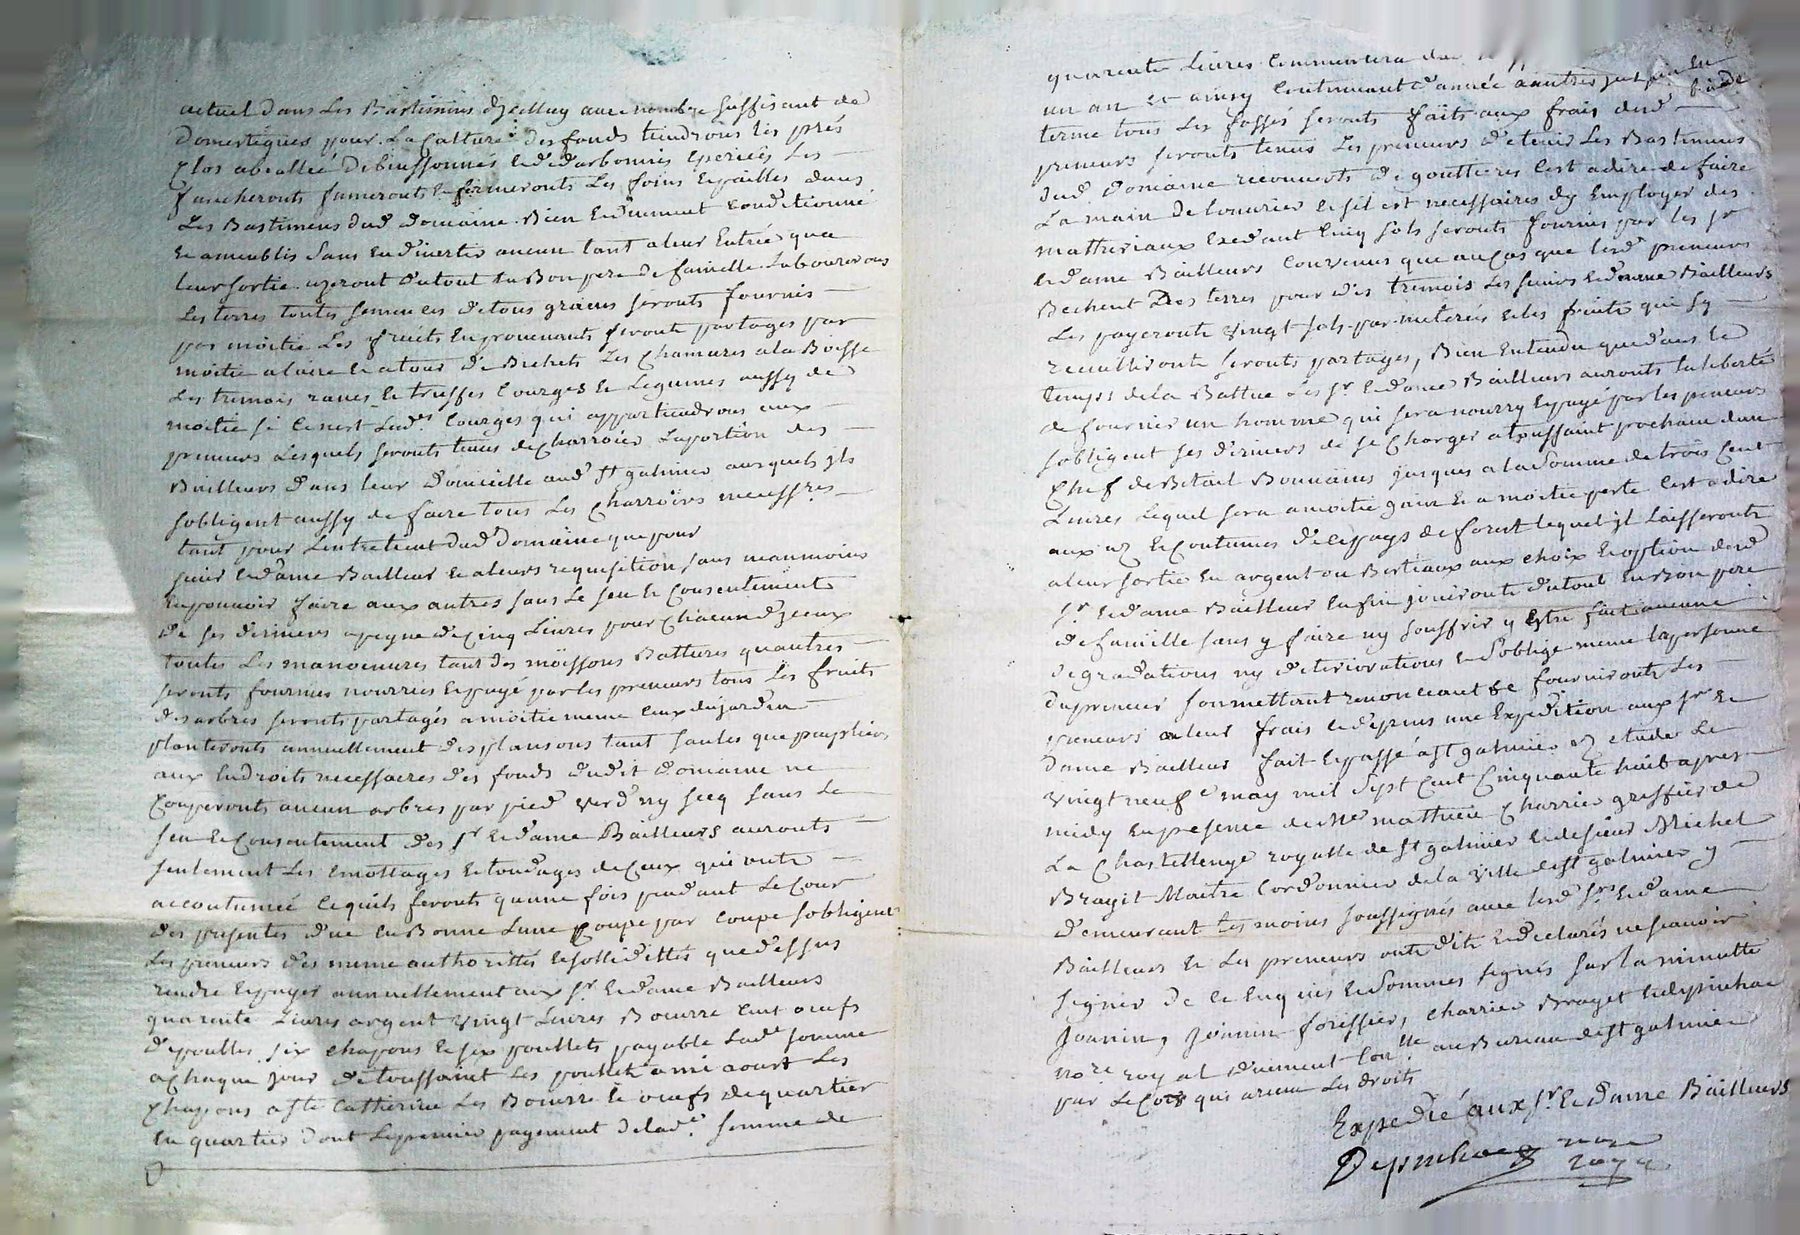 actuel dans Les Bastimens dycelluy avec nombre suffisant de
Domestiques pour La Culture des fonds tiendrons les prés
Clos abeallée debuissonnés et d'arbonnies espericés Les
faucheronts fumeronts et fermeronts Les foins et pailles dans
Les Bastimens dud domaine Bien et duement conditionné
et ameublis sans en divertir aucun tant a leur Entrée qua
leur sortie uzeront du tout en Bon pere de famille Laboureront
Les terres toutes semences de tous grains seronts fournis
par moitié Les fruits en provenants seront partagés par
moitié a laire et a tour de Bichets Les Chanvres a la Boisse
Les tremois raves et truffes Courges et Legumes aussy de
moitié si ce nest Lesd.es Courges qui appartiendrons aux
preneurs Lesquels seronts tenus de charroier La portion des
Bailleurs dans leur Domicille aud St galmier auxquels jls
sobligent aussy de faire tous Les Charroirs necessres
tant pour Lentretient dud Domaine que pour
sieur et dame Bailleur et a leurs requisition sans neanmoins
En pouvoir faire aux autres sans Le seu et Consentement
de ses derniers a peyne de Cinq Livres pour Chacun dyceux
toutes Les manoeuvres tant des moissons Battures quautres
seronts fournies nourries et payé par les preneurs tous Les fruits
des arbres seronts partagés a moitié meme Ceux du jardin
planteronts annuellement des plansons tant saules que peupliers
aux Endroits necessaires des fonds dudit Domaine ne
Couperonts aucun arbres par pied verd ny secq sans Le
seu et Consentement des Sr et dame Bailleurs auronts
seulement Les Emottages et tondages de Ceux qui ont
accoutumeé Ce quils feronts quune fois pendant Le Cour
des presentes due en Bonne Lune Coupe par Coupe sobligent
Les preneurs des meme authorittés et sollidittés que dessus
rendre et payer annuellement aux Sr et dame Bailleurs
quarente Livres argent vingt Livres Beurre Cent oeufs
de poulles six chapons et six poullets payable Lade somme
a Chaque jour de toussaint Les poullets a mi aoust Les
Chapons a Ste Catherine Les Beurre et oeufs de quartier
En quartier dont Le premier payement de lade somme de
quarente Livres Commencera
un an et ainsy Continuant d'année a autres jusques En fin de
terme tous Les fossés seronts faits aux frais desd
preneurs seronts tenus Les preneurs de tenir Les Bastimens
dud Domaine recouverts de gouttieres Cest a dire de faire
La main de louvrier et sil est necessaires dy Employer des
mattheriaux Exedant Cinq sols seronts fournis par les Sr
et dame Bailleurs Convenus que au Cas que lesd preneurs
Bechent Des terres pour des tremois Les sieurs et dame Bailleurs
Les payeronts vingt sols par meterée et les fruits qui sy
recuillironts seronts partagés, Bien Entendu que dans le
temps de la Battue Les Sr et dame Bailleurs auronts La liberté
de fournir un homme qui sera nourry et payé par les preneurs
sobligent ses derniers de se Charger a toussaint prochain dun
Chef de Betail Bonnains jusques a la Somme de trois Cent
Livres Lequel sera a moitié gain et a moitié perte Cest a dire
aux uz et Coutumes de ce pays de forest lequel jl Laisseronts
a leur sortie En argent ou Bestiaux aux choix et option desd
Sr et dame Bailleur En fin jouironts du tout En Bon pere
de famille sans y faire ny souffrir y Estre fait aucune
degradations ny deteriorations et Soblige meme La personne
du preneur soumettant renonceant &c fournironts Les
preneurs a leur frais et depens une Expedition aux Sr et
dame Bailleur fait et passé a St galmier ez etude Le
vingt neuf e may mil sept Cent Cinquante huit apres
midy En presence de Me mathieu Charrier greffier de
La Chastellenye royalle de St galmier et de sieur Michel
Brayet Maitre Cordonnier de la ville de St galmier y
demeurant tesmoins soussignés avec lesd Srs et dame
Bailleurs et Les preneurs onts dits et declarés ne scavoir
signer De Ce Enquis et Sommés signés sur La minutte
Joanin, Joanin forissier, charrier Brayet et depinhac
nore royal duement Conlle au Bureau de St galmier
par Le Cor qui a receu Les droits
Expedié aux Sr et dame Bailleurs
Depinhac nore
royal